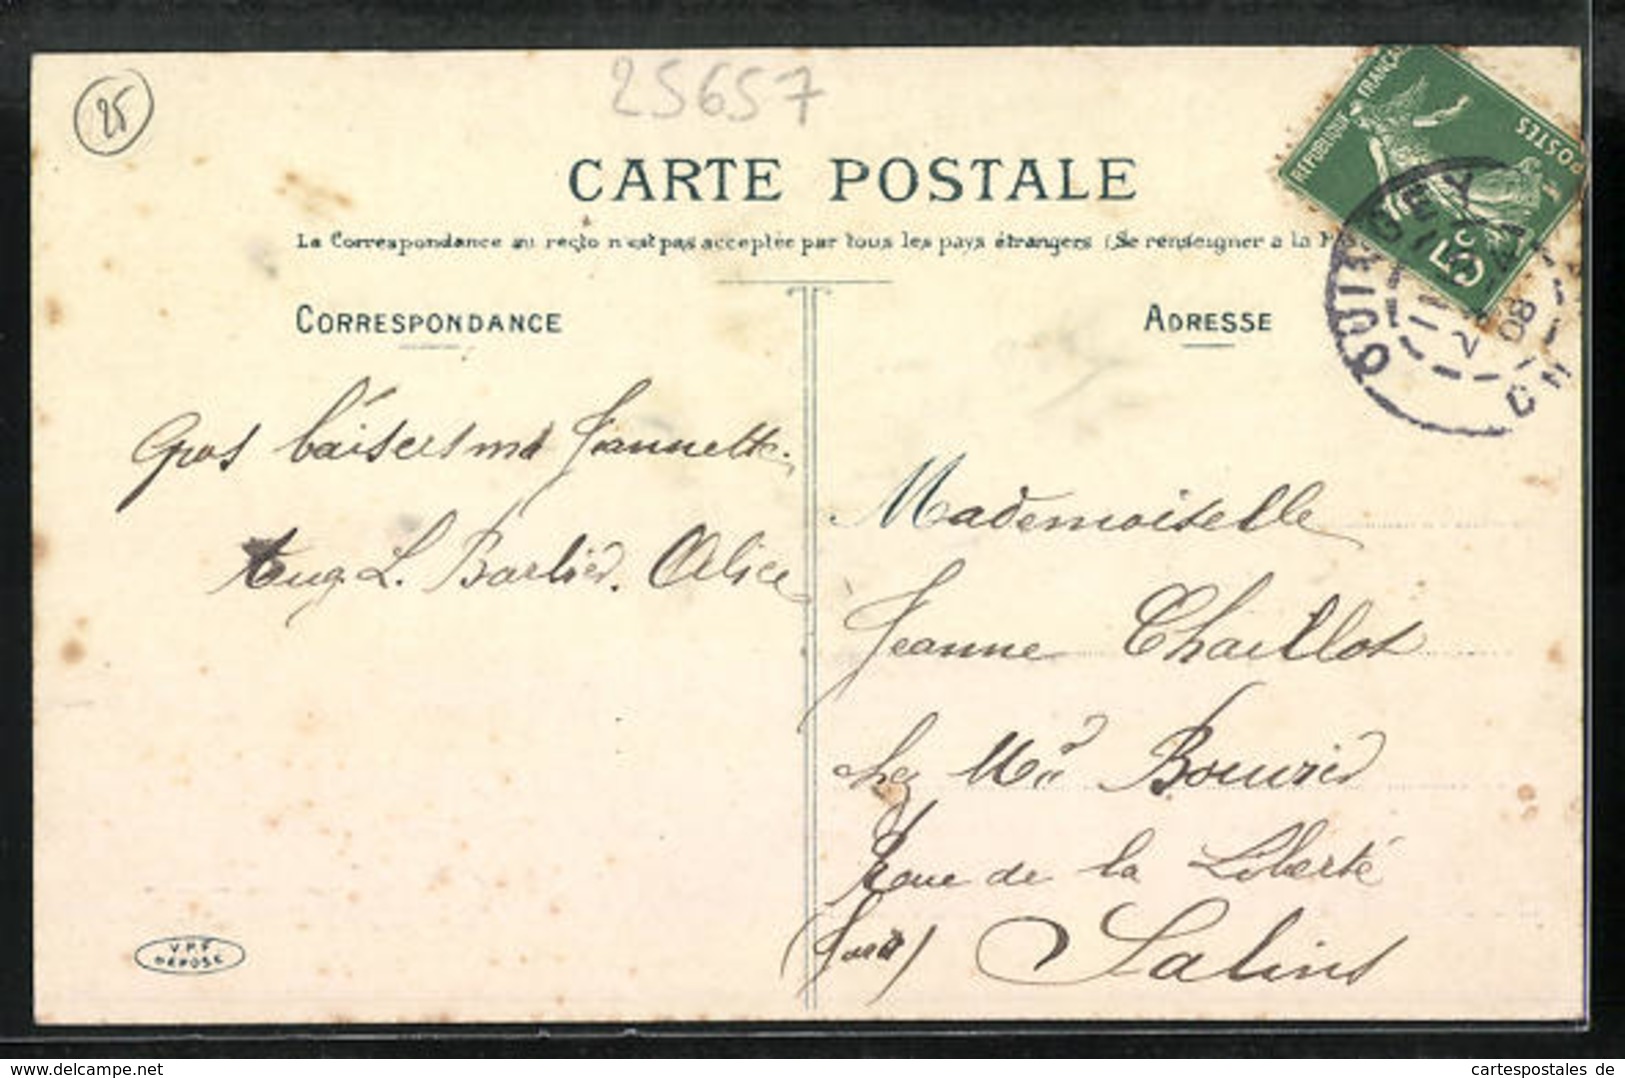 25
25657
CARTE POSTALE
La Correspondance au recto n'est pas acceptée par tous les pays étrangers (Se renseigner a la
CORRESPONDANCE
ADRESSE
RÉPUBLIQUE FRANÇAISE
POSTES
5c
QUINGEY
2
08
Gros baisers ma Jeannette.
Aug. L. Barbier. Alice
Mademoiselle
Jeanne Chaillot
chez Mr Bouvier
Rue de la Liberté
(Jura) Salins
V.P.F
DÉPOSÉ
www.delcampe.net
cartespostales de